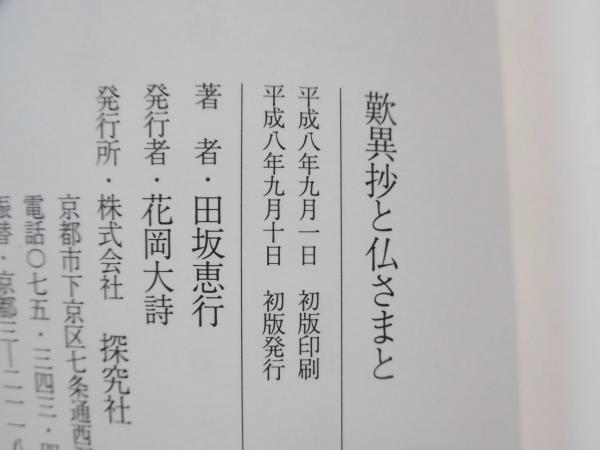 歎異抄と仏さまと
平成八年九月一日 初版印刷
平成八年九月十日 初版発行
著者・田坂恵行
発行者・花岡大詩
発行所・株式会社 探究社
京都市下京区七条通西
電話〇七五・三四三・四
振替・京都三―二一一八